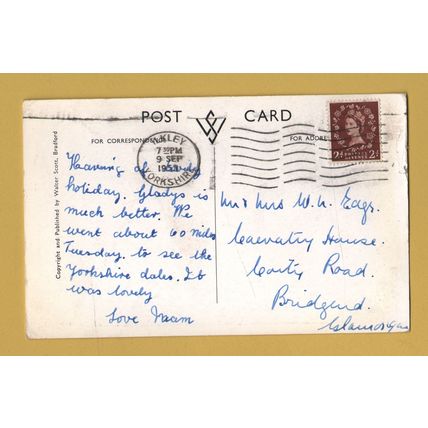 POST CARD
FOR CORRESPONDENCE
FOR ADDRE
ILKLEY
7 PM
9 SEP
YORKSHIRE
POSTAGE REVENUE
2d 2d
Copyright and Published by Walter Scott, Bradford
Heaving a lovely
holiday. Gladys is
much better. We
went about 60 miles
Tuesday. to see the
Yorkshire dales. It
was lovely
Love Mam
Mr & Mrs W. H.
House.
Road.
Bridgend.
Glamorgan